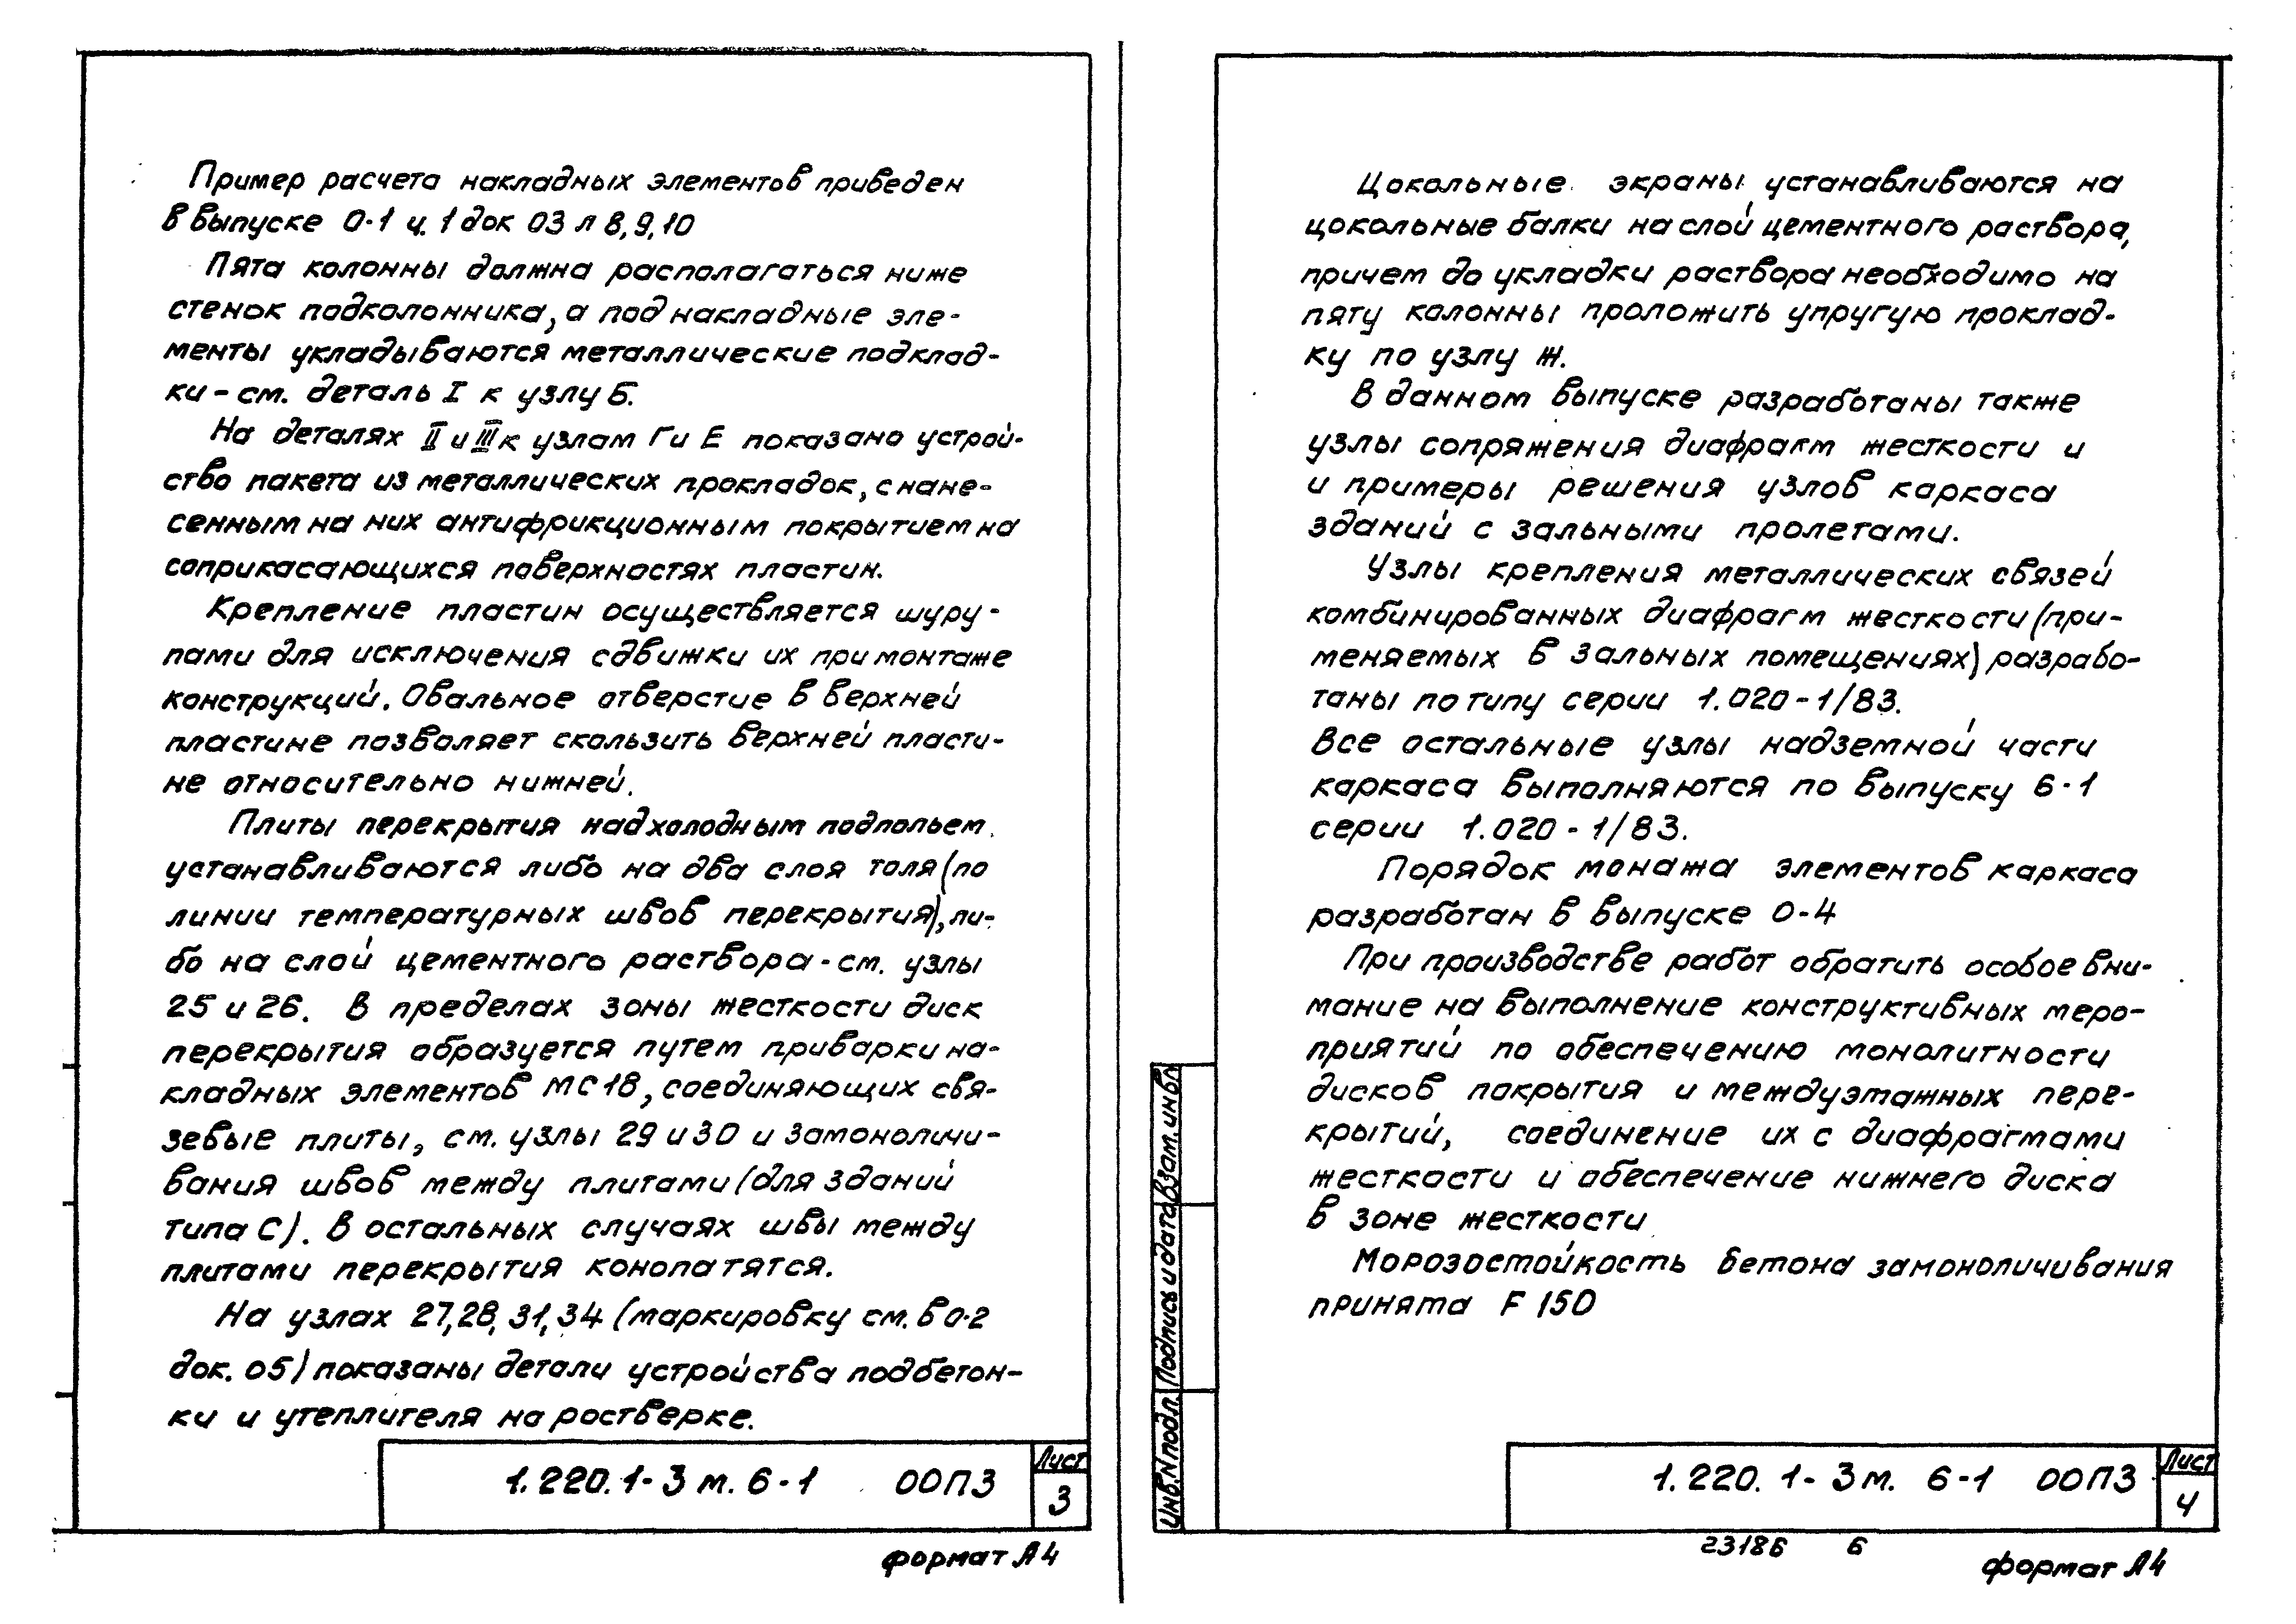 Пример расчета накладных элементов приведен
в выпуске 0-1 ч. 1 док 03 л 8, 9, 10
Пята колонны должна располагаться ниже
стенок подколонника, а под накладные эле-
менты укладываются металлические подклад-
ки - см. деталь I к узлу Б.
На деталях II и III к узлам Г и Е показано устрой-
ство пакета из металлических прокладок, с нане-
сенным на них антифрикционным покрытием на
соприкасающихся поверхностях пластин.
Крепление пластин осуществляется шуру-
пами для исключения сдвижки их при монтаже
конструкций. Овальное отверстие в верхней
пластине позволяет скользить верхней пласти-
не относительно нижней.
Плиты перекрытия над холодным подпольем
устанавливаются либо на два слоя толя (по
линии температурных швов перекрытия), ли-
бо на слой цементного раствора - см. узлы
25 и 26. В пределах зоны жесткости диск
перекрытия образуется путем приварки на-
кладных элементов МС18, соединяющих свя-
зевые плиты, см. узлы 29 и 30 и замоноличи-
вания швов между плитами (для зданий
типа С). В остальных случаях швы между
плитами перекрытия конопатятся.
На узлах 27, 28, 31, 34 (маркировку см. в 0-2
док. 05) показаны детали устройства подбетон-
ки и утеплителя на ростверке.
1.220.1-3 м. 6-1 00ПЗ
Лист
3
формат А4
Цокольные экраны устанавливаются на
цокольные балки на слой цементного раствора,
причем до укладки раствора необходимо на
пяту колонны проложить упругую проклад-
ку по узлу Ж.
В данном выпуске разработаны также
узлы сопряжения диафрагм жесткости и
и примеры решения узлов каркаса
зданий с зальными пролетами.
Узлы крепления металлических связей
комбинированных диафрагм жесткости (при-
меняемых в зальных помещениях) разрабо-
таны по типу серии 1.020-1/83.
Все остальные узлы надземной части
каркаса выполняются по выпуску 6-1
серии 1.020-1/83.
Порядок монажа элементов каркаса
разработан в выпуске 0-4
При производстве работ обратить особое вни-
мание на выполнение конструктивных меро-
приятий по обеспечению монолитности
дисков покрытия и междуэтажных пере-
крытий, соединение их с диафрагмами
жесткости и обеспечение нижнего диска
в зоне жесткости
Морозостойкость бетона замоноличивания
принята F 150
Инв. N подл.
Подпись и дата
Взам. инв.
1.220.1-3 м. 6-1 00ПЗ
Лист
4
23186 6
формат А4